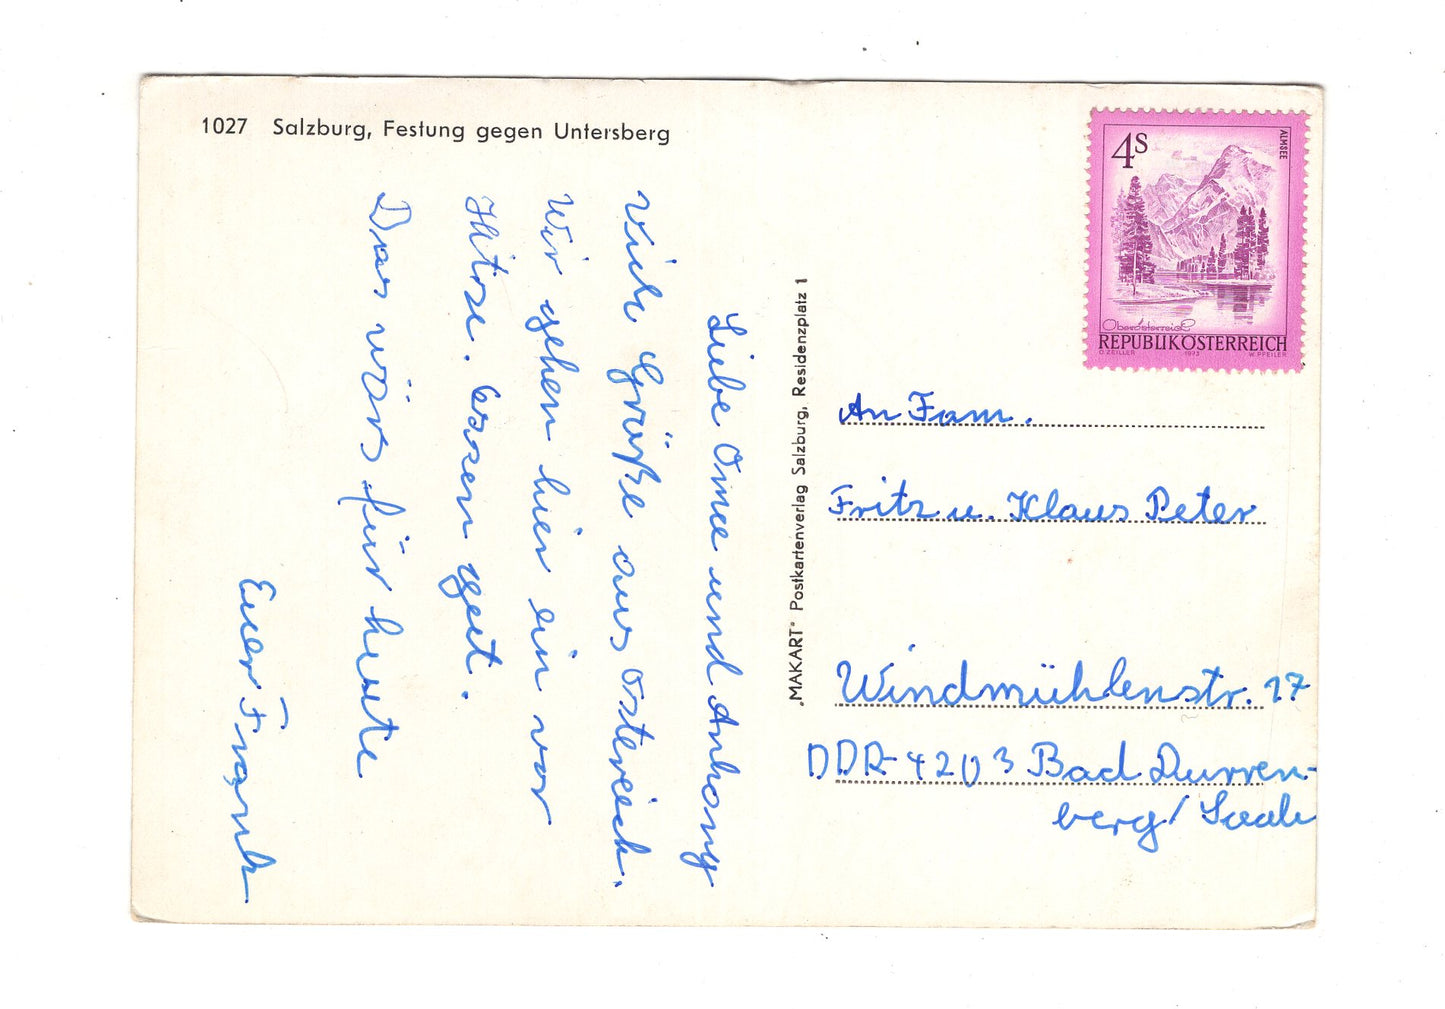 1027 Salzburg, Festung gegen Untersberg
Liebe Omee und Anhang
Viele Grüße aus Östereich.
Wir gehen hier ein vor
Hitze. Essen gut.
Das wärs für heute
Euer Frank
„MAKART" Postkartenverlag Salzburg, Residenzplatz 1
4S
ALMSEE
Oberösterreich
REPUBLIK ÖSTERREICH
O. ZEILLER 1973 W. PFEILER
An Fam.
Fritz u. Klaus Peter
Windmühlenstr. 17
DDR-4203 Bad Durren-
berg/ Saale